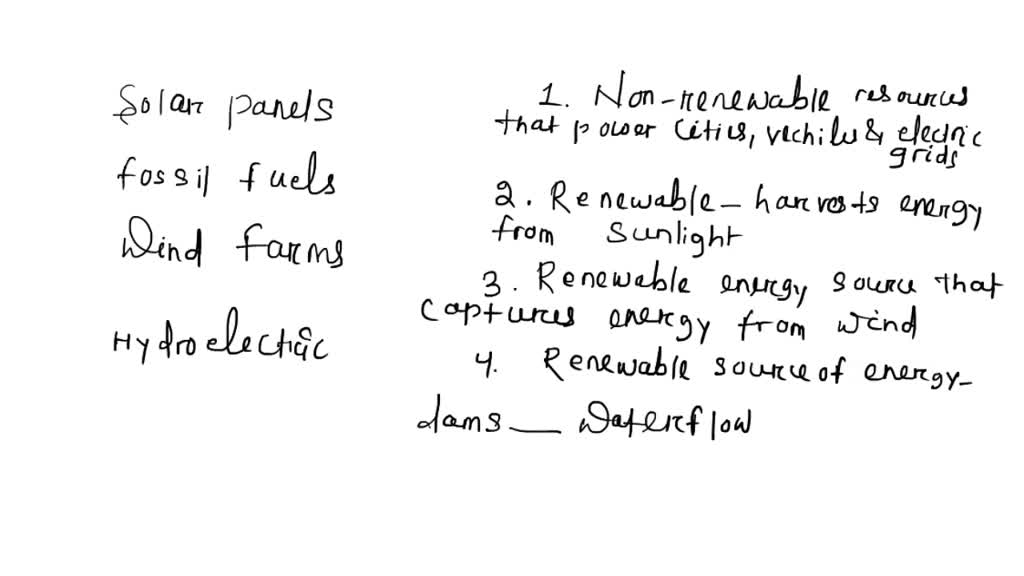 Solar panels
fossil fuels
Wind farms
Hydroelectric
1. Non-renewable resources
that power cities, vechiles & electric
grids
2. Renewable - harvests energy
from sunlight
3. Renewable energy source that
captures energy from wind
4. Renewable source of energy-
dams — Waterflow